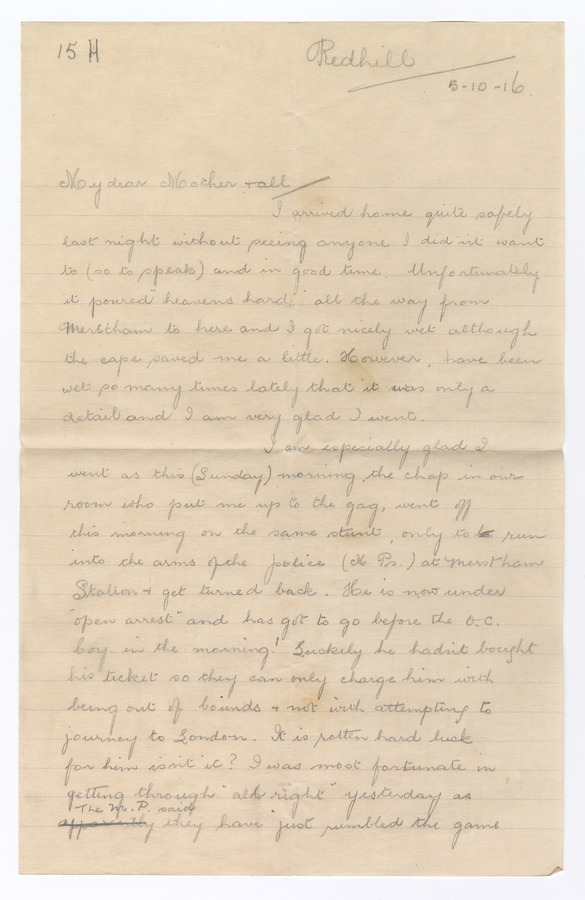 15 H
Redhill
5-10-16
My dear Mother & all
I arrived home quite safely
last night without seeing anyone I did n't want
to (so to speak) and in good time. Unfortunately
it poured "heavens hard" all the way from
Merstham to here and I got nicely wet although
the cape saved me a little. However, have been
wet so many times lately that it was only a
detail and I am very glad I went.
I am especially glad I
went as this (Sunday) morning, the chap in our
room who put me up to the gag, went off
this morning on the same stunt, only to run
into the arms of the police (M. Ps.) at Merstham
Station & get turned back. He is now under
"open arrest" and has got to go before the O.C.
Coy. in the morning! Luckely he hadn't bought
his ticket so they can only charge him with
being out of bounds & not with attempting to
journey to London. It is rotten hard luck
for him isn't it? I was most fortunate in
getting through "all right" yesterday as
The M.P. said
apparently they have "just rumbled the game